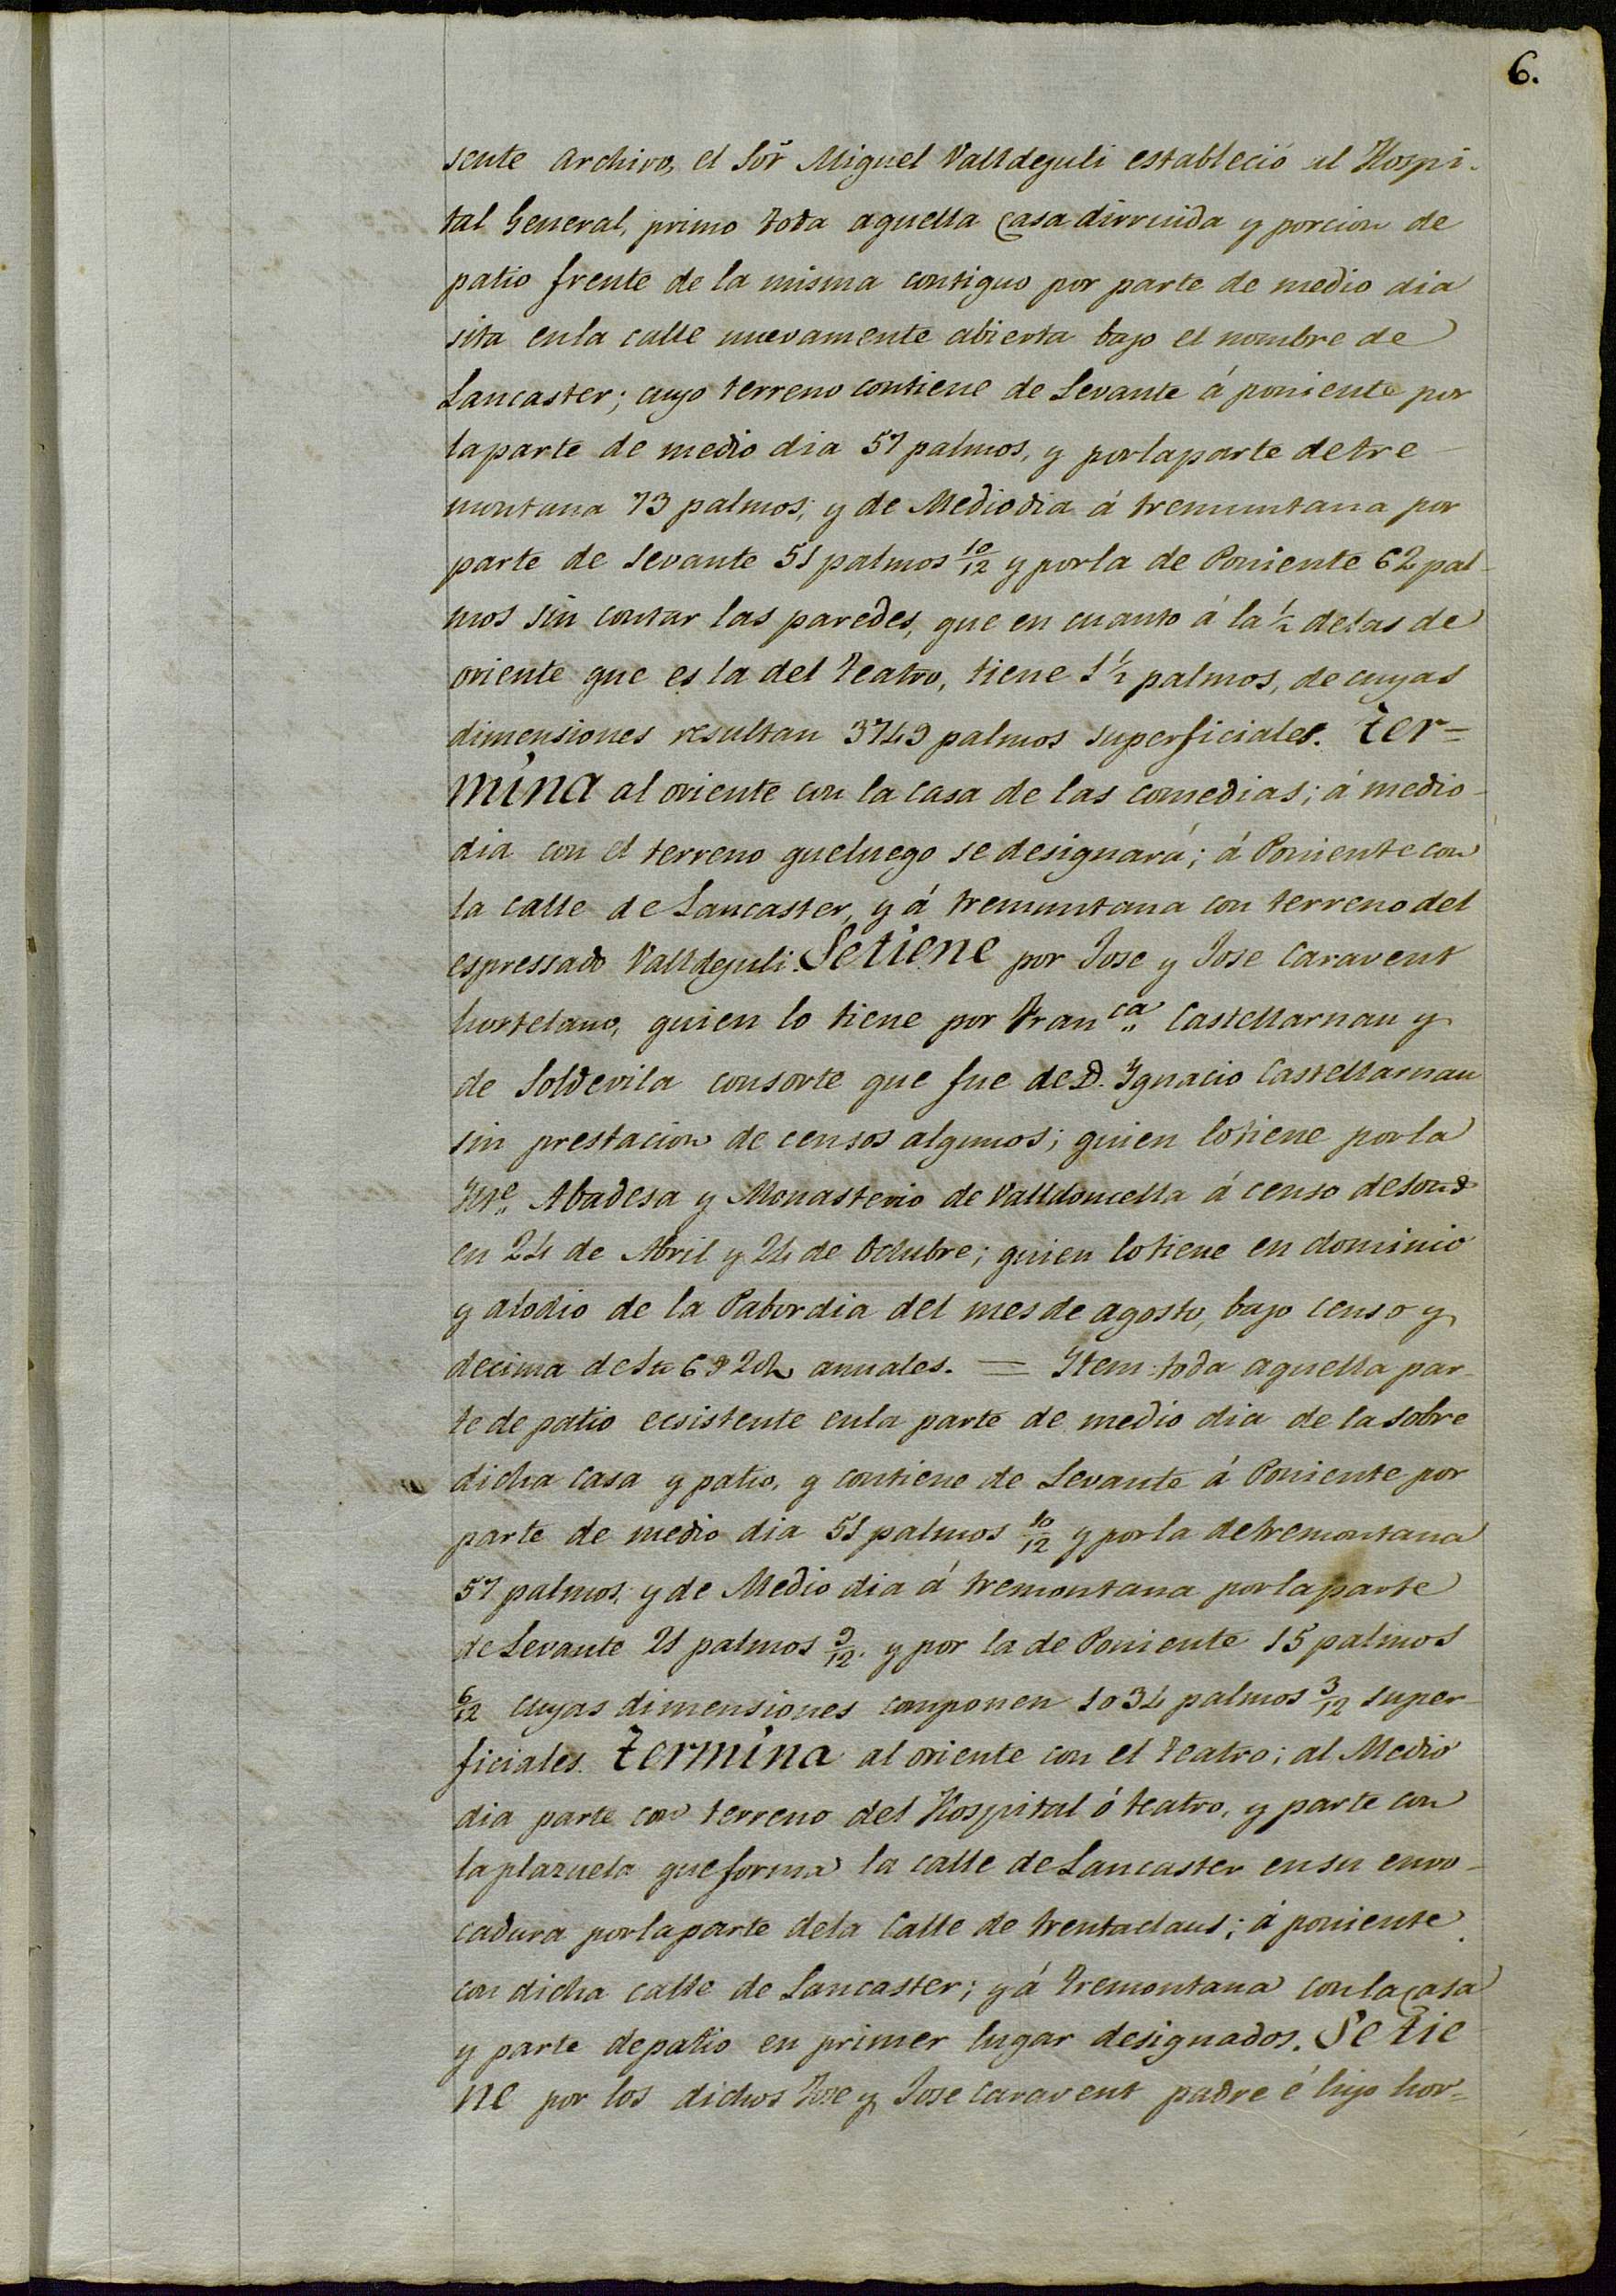 6.
sente Archivo, el Sor̃ Miguel Valldejuli estableció al Hospi-
tal General, primo toda aquella Casa dirruida y porcion de
patio frente de la misma contiguo por parte de medio dia
sita enla calle nuevamente abierta bajo el nombre de
Lancaster; cuyo terreno contiene de Levante á poniente por
laparte de medio dia 57 palmos, y porlaparte detre
montana 73 palmos; y de Mediodia á tremuntana por
parte de Levante 51 palmos 10/12 y porla de Poniente 62 pal-
mos sin contar las paredes, que en cuanto á la ½ delas de
oriente que es la del Teatro, tiene 1½ palmos, de cuyas
dimensiones resultan 3749 palmos superficiales. Ter=
mina al oriente con la casa de las comedias; á medio-
dia con el terreno queluego se designará; á Poniente con
la calle de Lancaster, y á tremuntana con terreno del
espressado Valldejuli. Setiene por Jose y Jose Caravent
hortelano, quien lo tiene por Fran.ca Castellarnau y
de Soldevila consorte que fue de D. Ygnacio Castellarnau
sin prestacion de censos algunos; quien lotiene porla
Yltre. Abadesa y Monasterio de Valldoncella á censo de
en 24 de Abril y 24 de Octubre; quien lotiene en dominio
y alodio de la Pabordia del mes de agosto, bajo censo y
decima de anuales. = Ytem toda aquella par-
te de patio ecsistente enla parte de medio dia de la sobre
dicha casa y patio, y contiene de Levante á Poniente por
parte de medio dia 51 palmos 10/12 y porla detremontana
57 palmos; y de Medio dia á tremontana porlaparte
de Levante 21 palmos 9/12. y por la de Poniente 15 palmos
6/12 cuyas dimensiones componen 1034 palmos 3/12 super-
ficiales. Termina al oriente con el Teatro; al Medio
dia parte con terreno del Hospital ó teatro, y parte con
laplazuela queforma la calle de Lancaster ensu envo-
cadura porlaparte dela Calle de trentaclaus; á poniente
con dicha calle de Lancaster; y á Tremontana conlacasa
y parte depatio en primer lugar designados. Se Tie
ne por los dichos Jose y Jose Caravent padre é hijo hor=